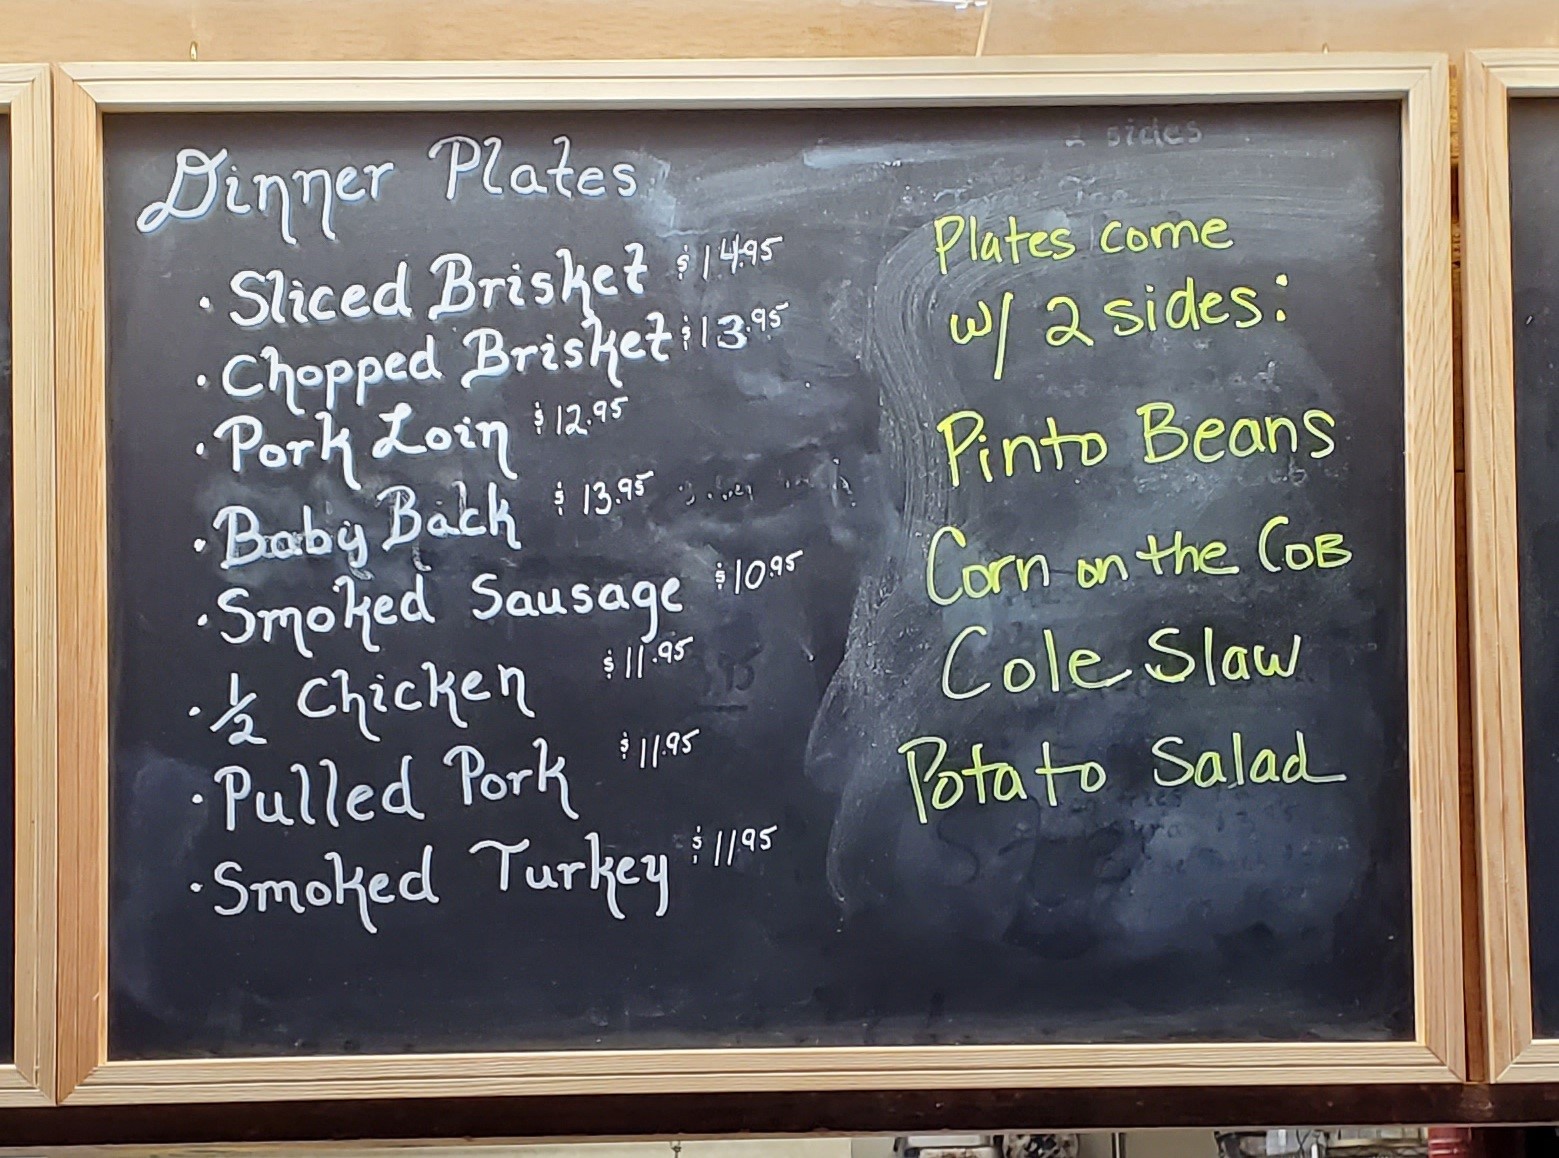 Dinner Plates
· Sliced Brisket $14.95
· Chopped Brisket $13.95
· Pork Loin $12.95
· Baby Back $13.95
· Smoked Sausage $10.95
· 1/2 Chicken $11.95
· Pulled Pork $11.95
· Smoked Turkey $11.95
2 sides
Plates come
w/ 2 sides:
Pinto Beans
Corn on the COB
Cole Slaw
Potato Salad